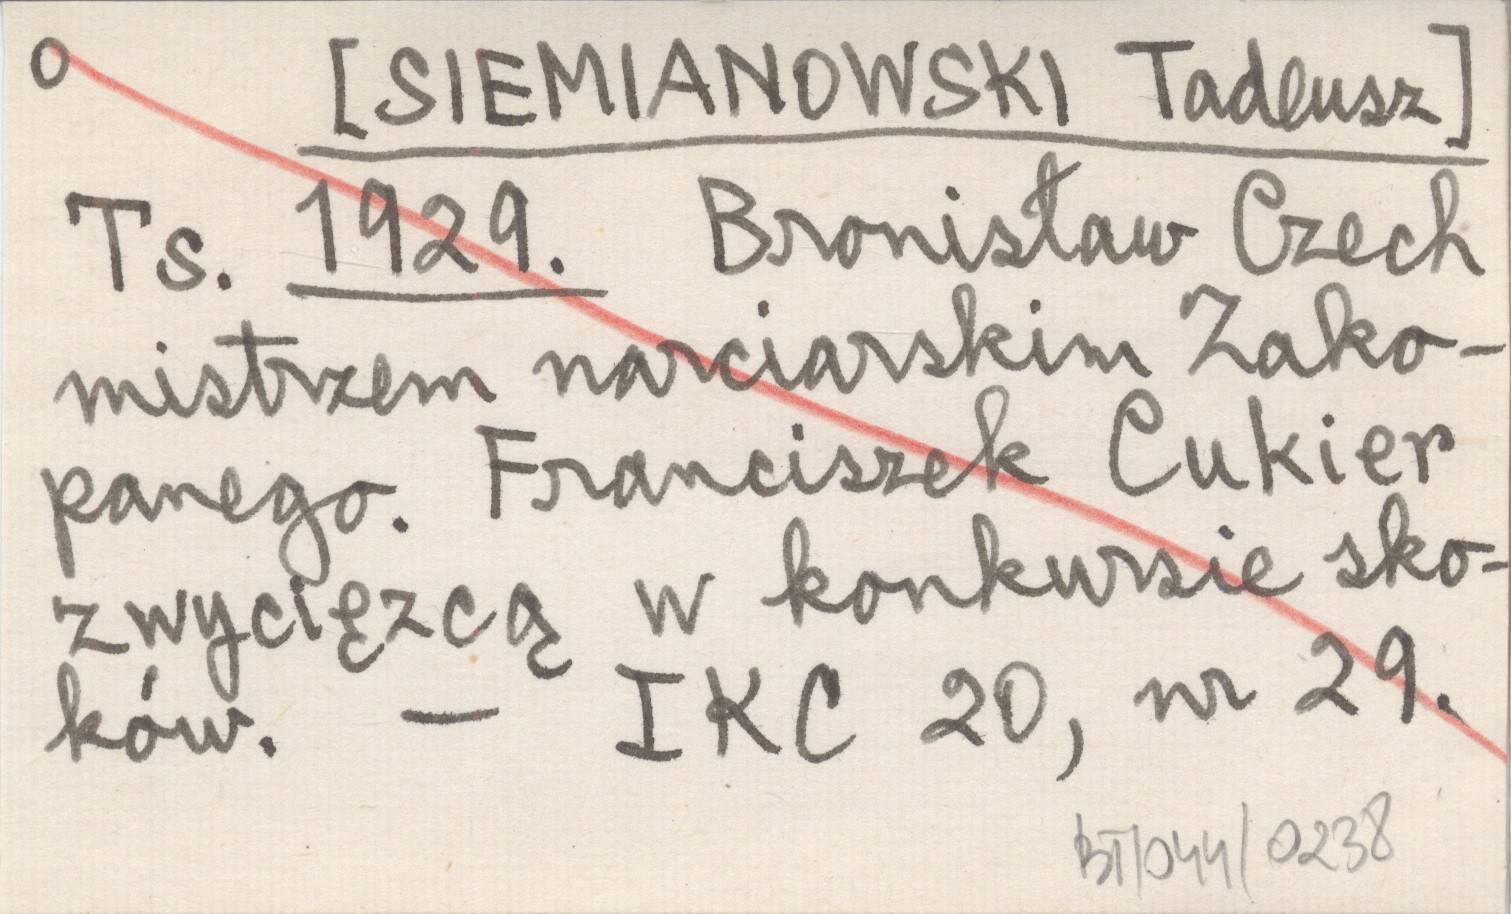 o [SIEMIANOWSKI Tadeusz]
Ts. 1929. Bronisław Czech
mistrzem narciarskim Zako-
panego. Franciszek Cukier
zwycięzcą w konkursie sko-
ków. — IKC 20, nr 29.
BT/044/0238